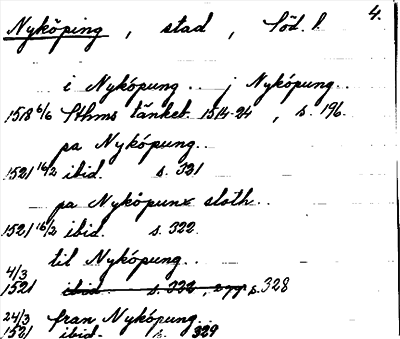 4.
Nyköping, stad, Söd. l.
i Nykópung.. j Nykópung..
1518 6/6 Sthms tänkeb. 1514-24, s. 196.
pa Nykópung..
1521 16/2 ibid. s. 321
pa Nykópunx sloth..
1521 16/2 ibid. s. 322
til Nykópung..
4/3
1521 ibid. s. 322, s. 328
24/3 fran Nykópung..
1521 ibid. s. 329